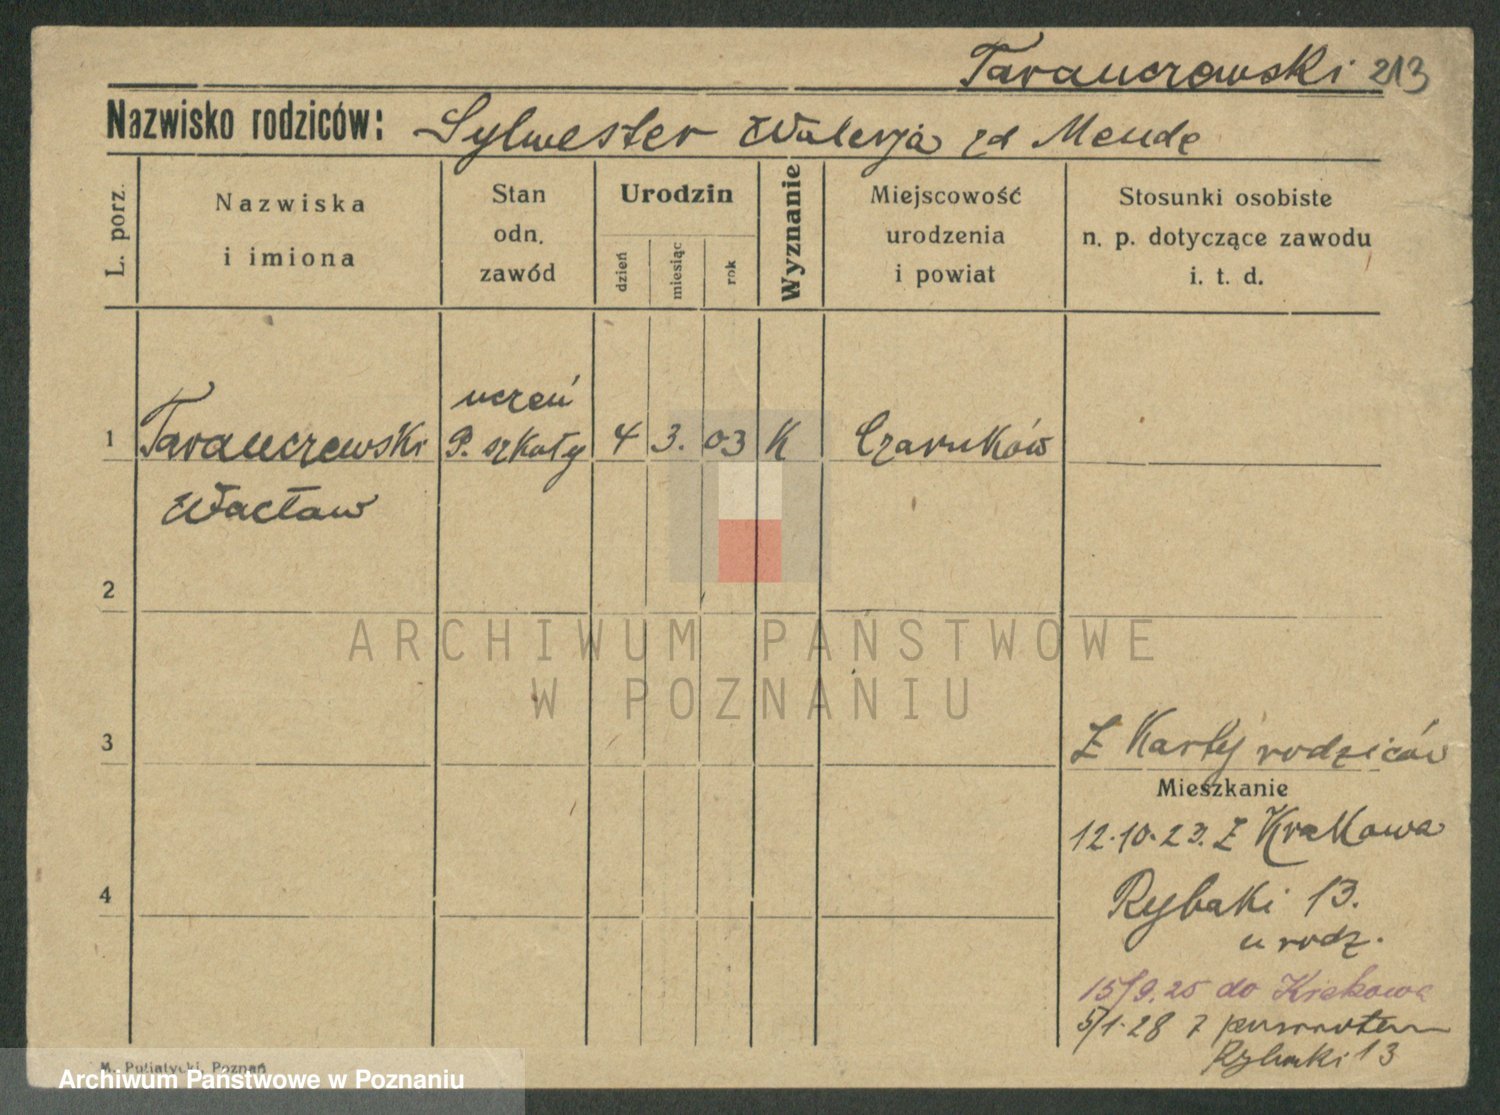 Taranczewski 213
Nazwisko rodziców: Sylwester Walerja zd Mendę
L. porz.
Nazwiska
i imiona
Stan
odn.
zawód
Urodzin
dzień
miesiąc
rok
Wyznanie
Miejscowość
urodzenia
i powiat
Stosunki osobiste
n. p. dotyczące zawodu
i. t. d.
uczeń
1 Taranczewski P. szkoły 4 3. 03 K Czarnków
Wacław
2
ARCHIWUM PAŃSTWOWE
W POZNANIU
3
Z Karty rodziców
Mieszkanie
12.10.23. Z Krakowa
4
Rybaki 13.
u rodz.
15/9.25 do Krakowa
5/1.28 z powrotem
Rybaki 13
M. Putiatycki, Poznań
Archiwum Państwowe w Poznaniu